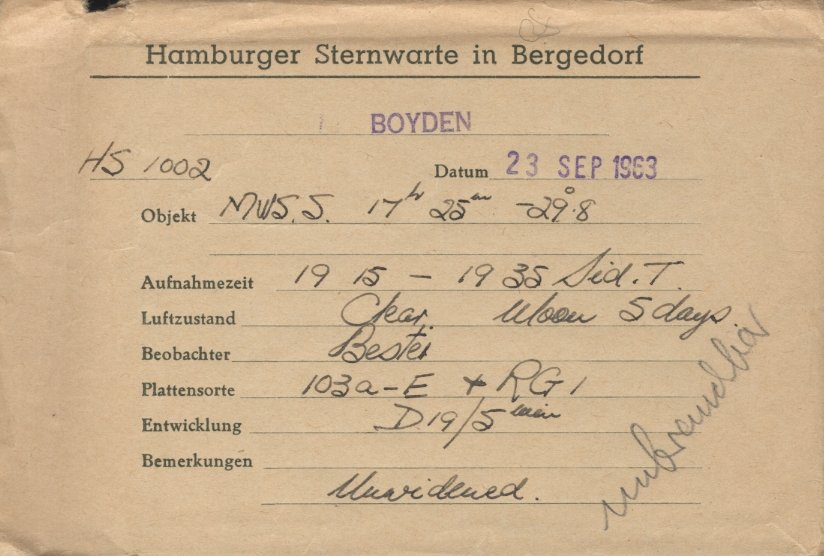 Hamburger Sternwarte in Bergedorf
BOYDEN
HS 1002 Datum 23 SEP 1963
Objekt MWS.S. 17h 25m -29°.8
Aufnahmezeit 19 15 - 19 35 Sid. T.
Luftzustand Clear. Moon 5 days.
Beobachter Bester
Plattensorte 103a-E + RG1
Entwicklung D19/5 min
Bemerkungen
Unwidened.
unbrauchbar